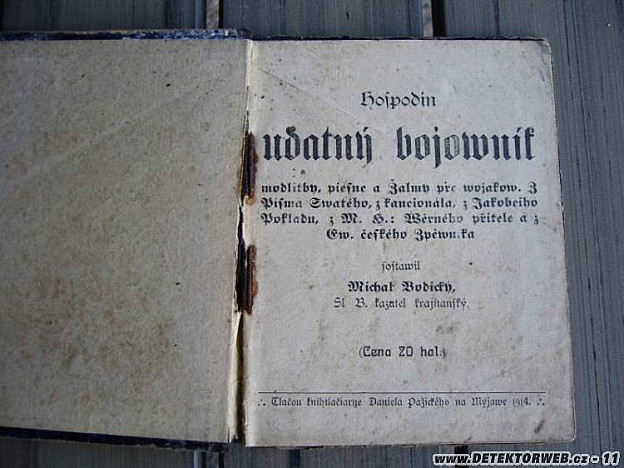 Hospodin
udatný bojownik
modlitby, piesne a Žalmy pre wojakow. Z
Pisma Swatého, z kancionála, z Jakobeiho
Pokladu, z M. H.: Wěrného přitele a z
Ew. českého Zpěwnika
sostawil
Michal Bodický,
Sl B. kazatel krajňanský.
(Cena 20 hal.)
∴ Tlačou knihtlačiarne Daniela Pažického na Myjawe 1914. ∴
www.DETEKTORWEB.cz - 11